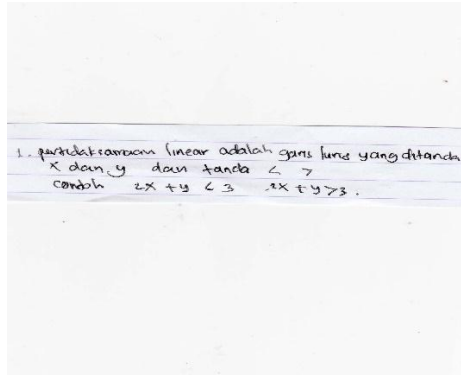 1. pertidaksamaan linear adalah garis lurus yang ditanda
x dan y dan tanda < >
contoh 2x + y < 3 2x + y > 3.